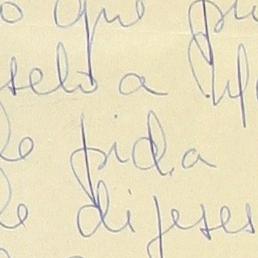 o que
selo a
le pida
le dijeses